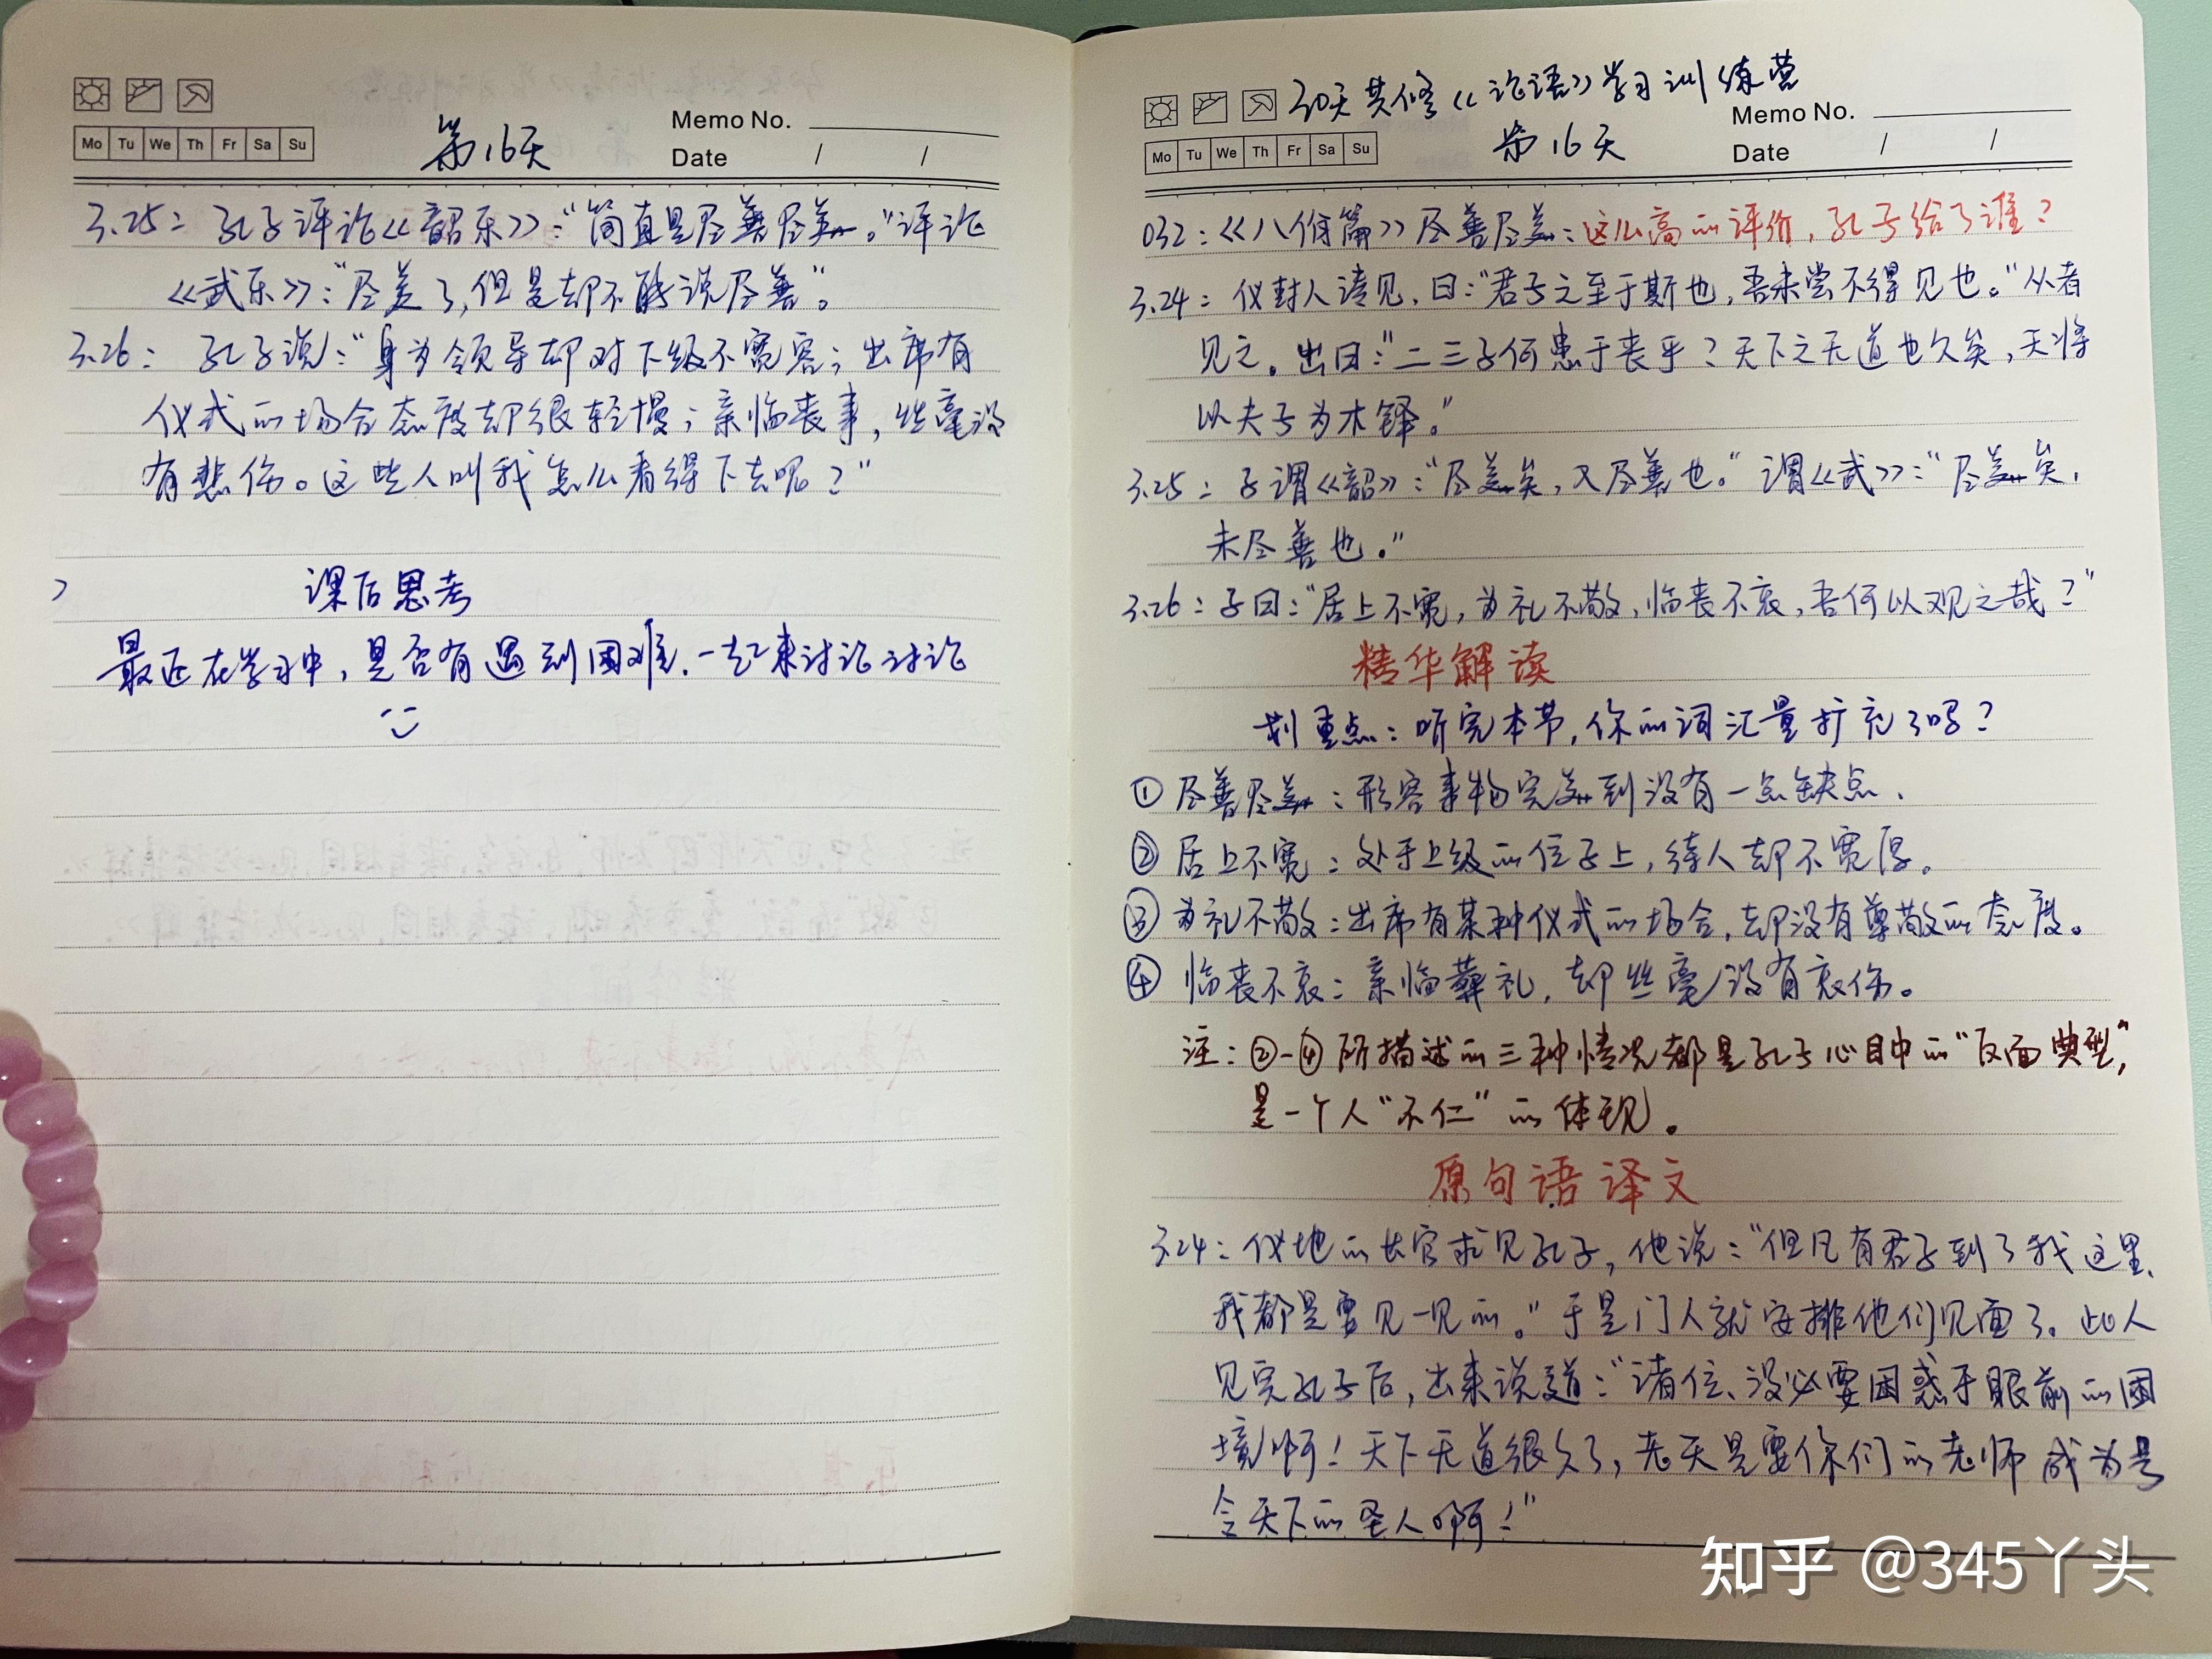 Mo Tu We Th Fr Sa Su
第16天
Memo No.
Date / /
3.25：孔子评论《韶乐》：“简直是尽善尽美。”评论
《武乐》：“尽美了，但是却不能说尽善”。
3.26：孔子说：“身为领导却对下级不宽容；出席有
仪式的场合态度却很轻慢；亲临丧事，丝毫没
有悲伤。这些人叫我怎么看得下去呢？”
课后思考
最近在学习中，是否有遇到困难.一起来讨论讨论
30天共修《论语》学习训练营
Mo Tu We Th Fr Sa Su
第16天
Memo No.
Date / /
032：《八佾篇》尽善尽美：这么高的评价，孔子给了谁？
3.24：仪封人请见，曰：“君子之至于斯也，吾未尝不得见也。”从者
见之。出曰：“二三子何患于丧乎？天下之无道也久矣，天将
以夫子为木铎。”
3.25：子谓《韶》：“尽美矣，又尽善也。”谓《武》：“尽美矣，
未尽善也。”
3.26：子曰：“居上不宽，为礼不敬，临丧不哀，吾何以观之哉？”
精华解读
划重点：听完本节，你的词汇量扩充了吗？
① 尽善尽美：形容事物完美到没有一点缺点.
② 居上不宽：处于上级的位子上，待人却不宽厚。
③ 为礼不敬：出席有某种仪式的场合，却没有尊敬的态度。
④ 临丧不哀：亲临葬礼，却丝毫没有哀伤。
注：②-④所描述的三种情况都是孔子心目中的“反面典型”，
是一个人“不仁”的体现。
原句语译文
3.24：仪地的长官求见孔子，他说：“但凡有君子到了我这里、
我都是要见一见的。”于是门人就安排他们见面了。此人
见完孔子后，出来说道：“诸位、没必要困惑于眼前的困
境啊！天下无道很久了，老天是要你们的老师成为号
令天下的圣人啊！”
知乎 @345丫头